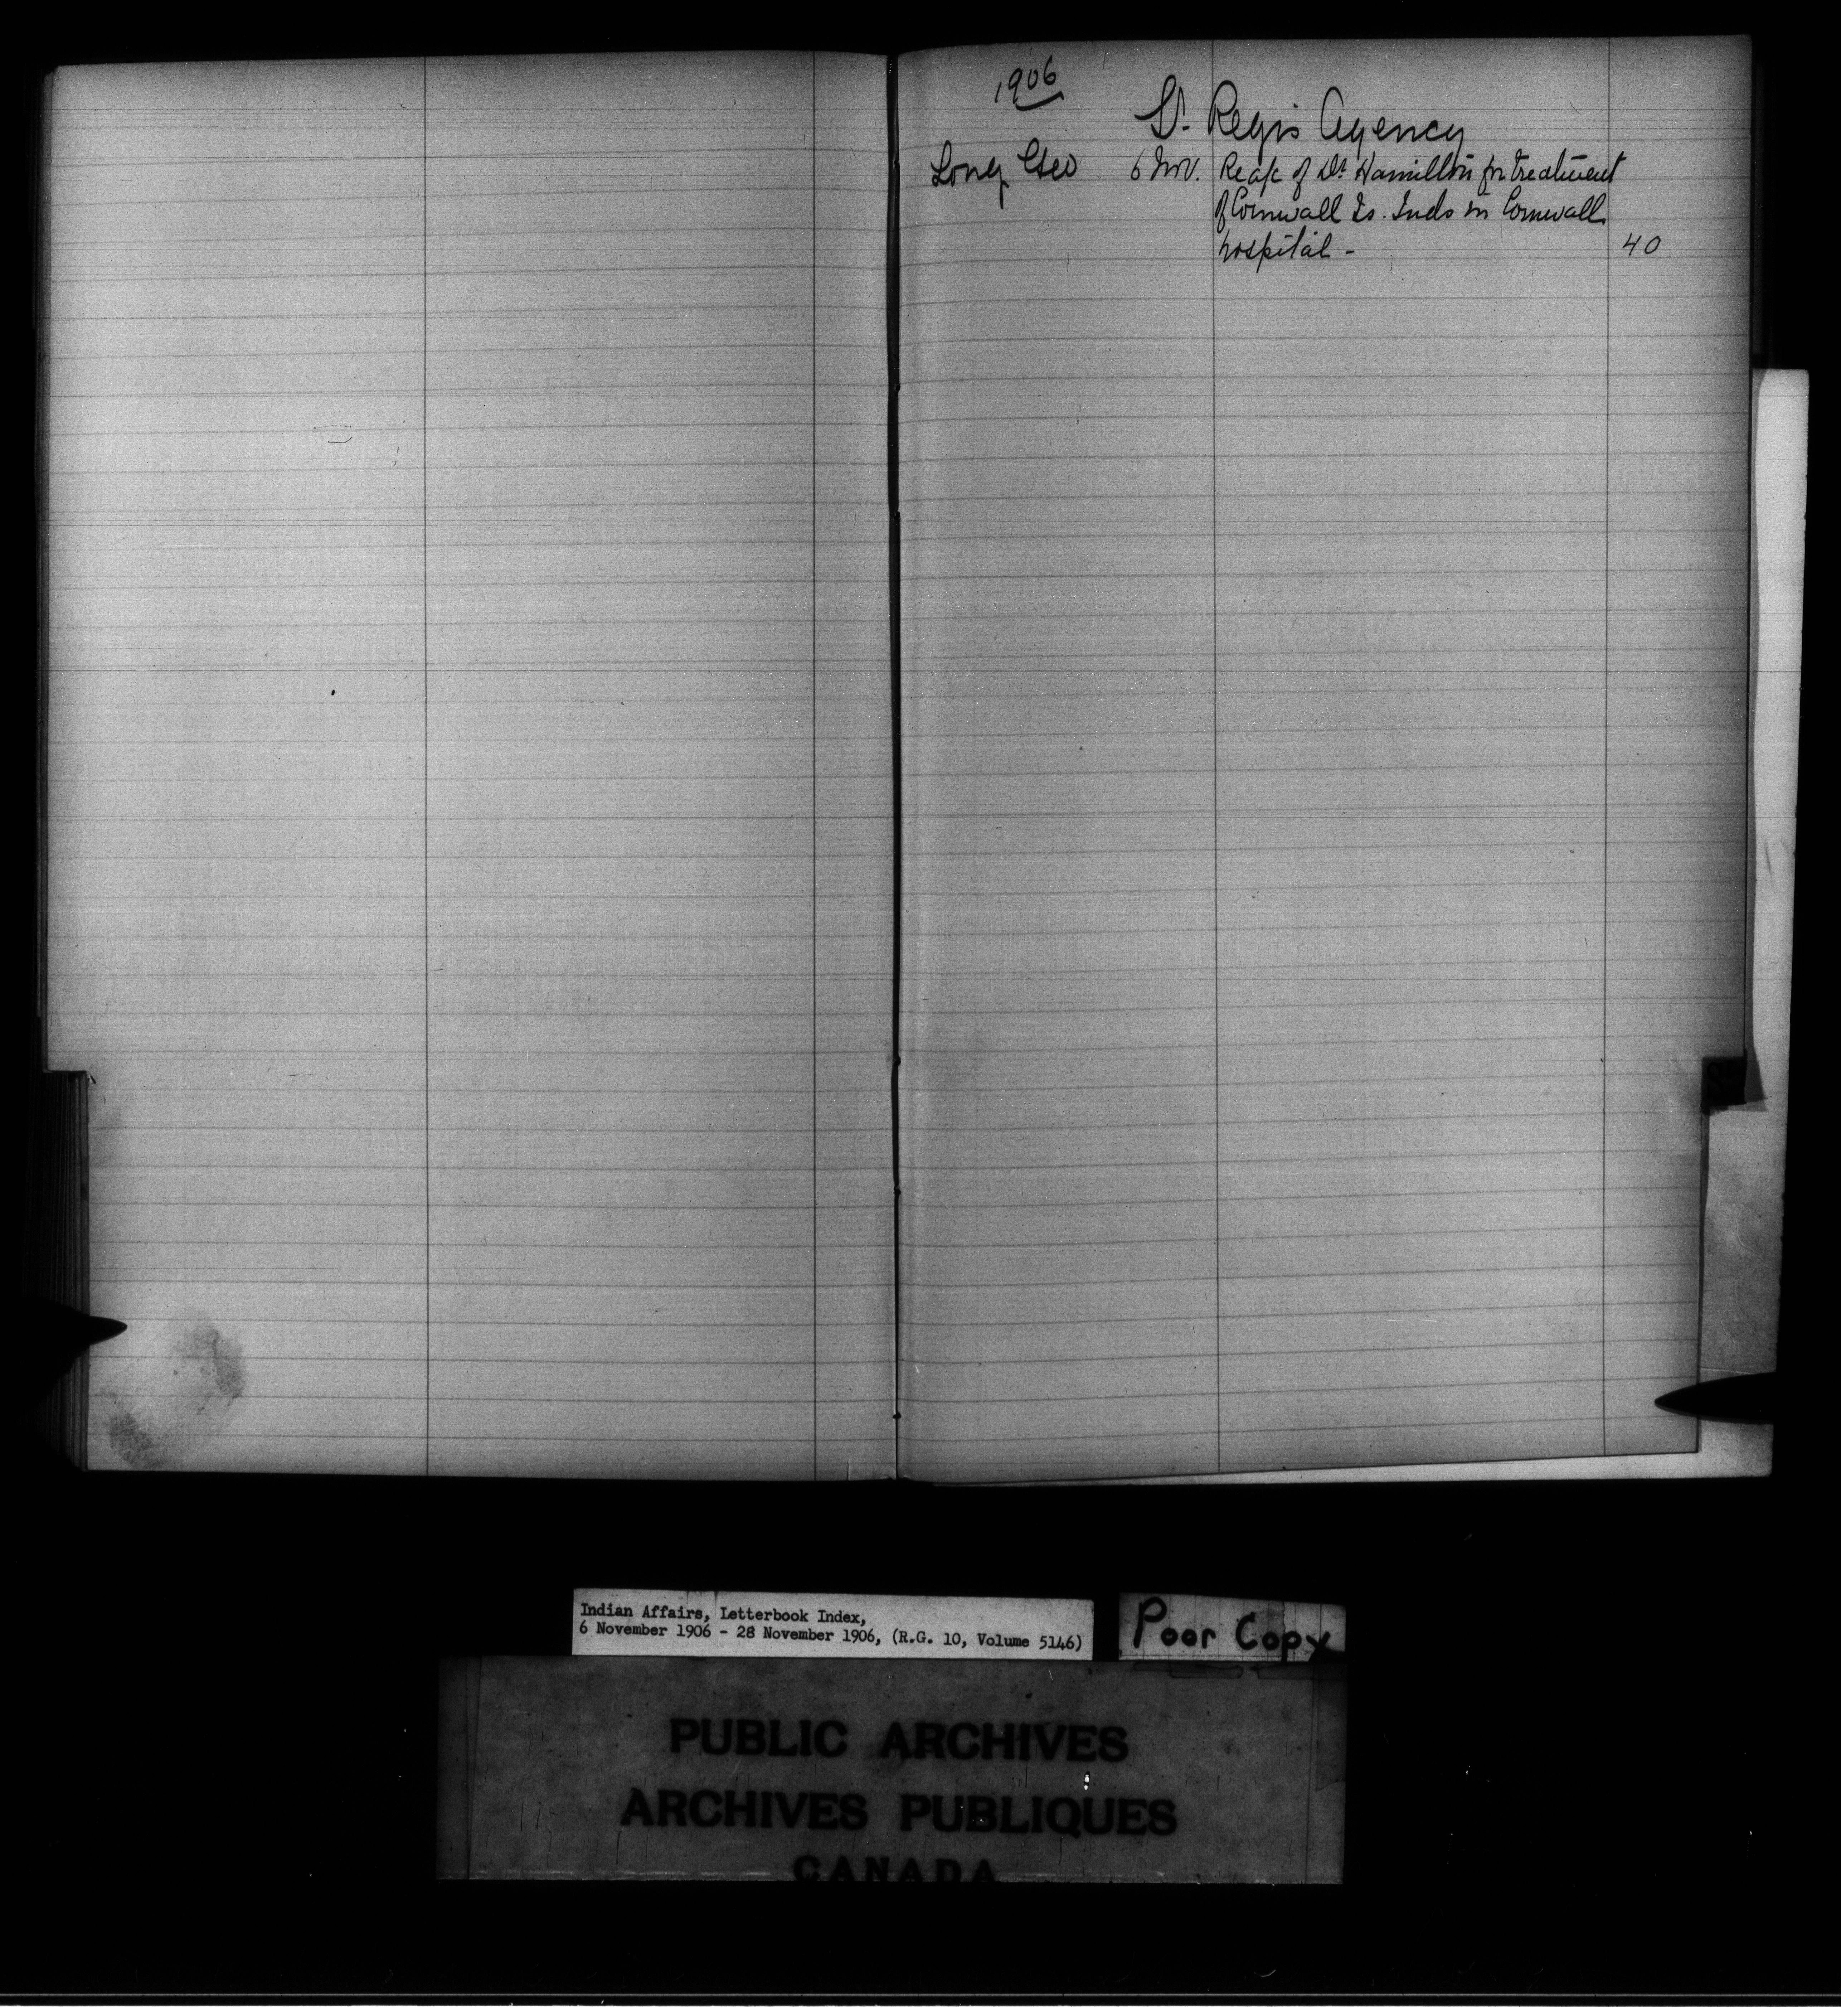 1906
St. Regis Agency
Long Geo 6 Nov. Re a/c of Dr. Hamilton for treatment
of Cornwall Is. Inds in Cornwall
hospital - 40
Indian Affairs, Letterbook Index,
6 November 1906 - 28 November 1906, (R.G. 10, Volume 5146)
Poor Copy
PUBLIC ARCHIVES
ARCHIVES PUBLIQUES
CANADA